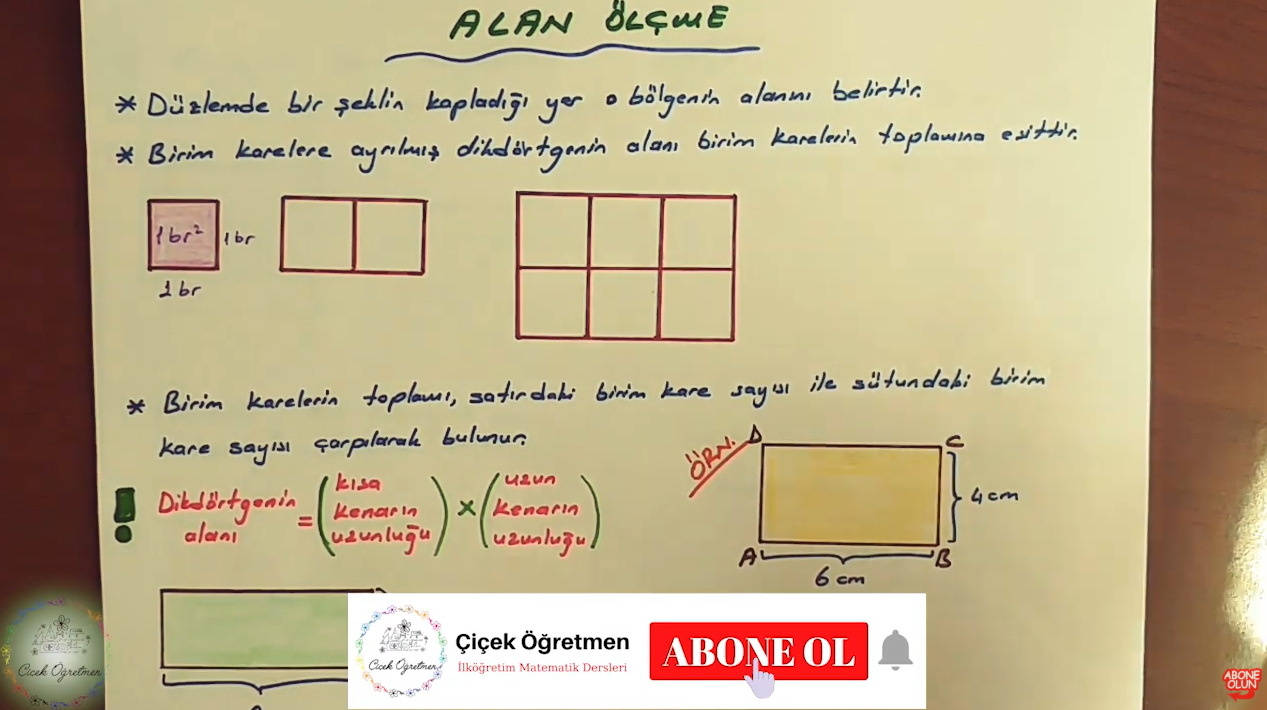 ALAN ÖLÇME
* Düzlemde bir şeklin kapladığı yer o bölgenin alanını belirtir.
* Birim karelere ayrılmış dikdörtgenin alanı birim karelerin toplamına eşittir.
1br²
1br
1br
* Birim karelerin toplamı, satırdaki birim kare sayısı ile sütundaki birim
kare sayısı çarpılarak bulunur.
Dikdörtgenin
alanı
=
(kısa
kenarın
uzunluğu)
×
(uzun
kenarın
uzunluğu)
ÖRN.
D
C
4 cm
A
B
6 cm
Çiçek Öğretmen
Çiçek Öğretmen
Çiçek Öğretmen
İlköğretim Matematik Dersleri
ABONE OL
ABONE
OLUN